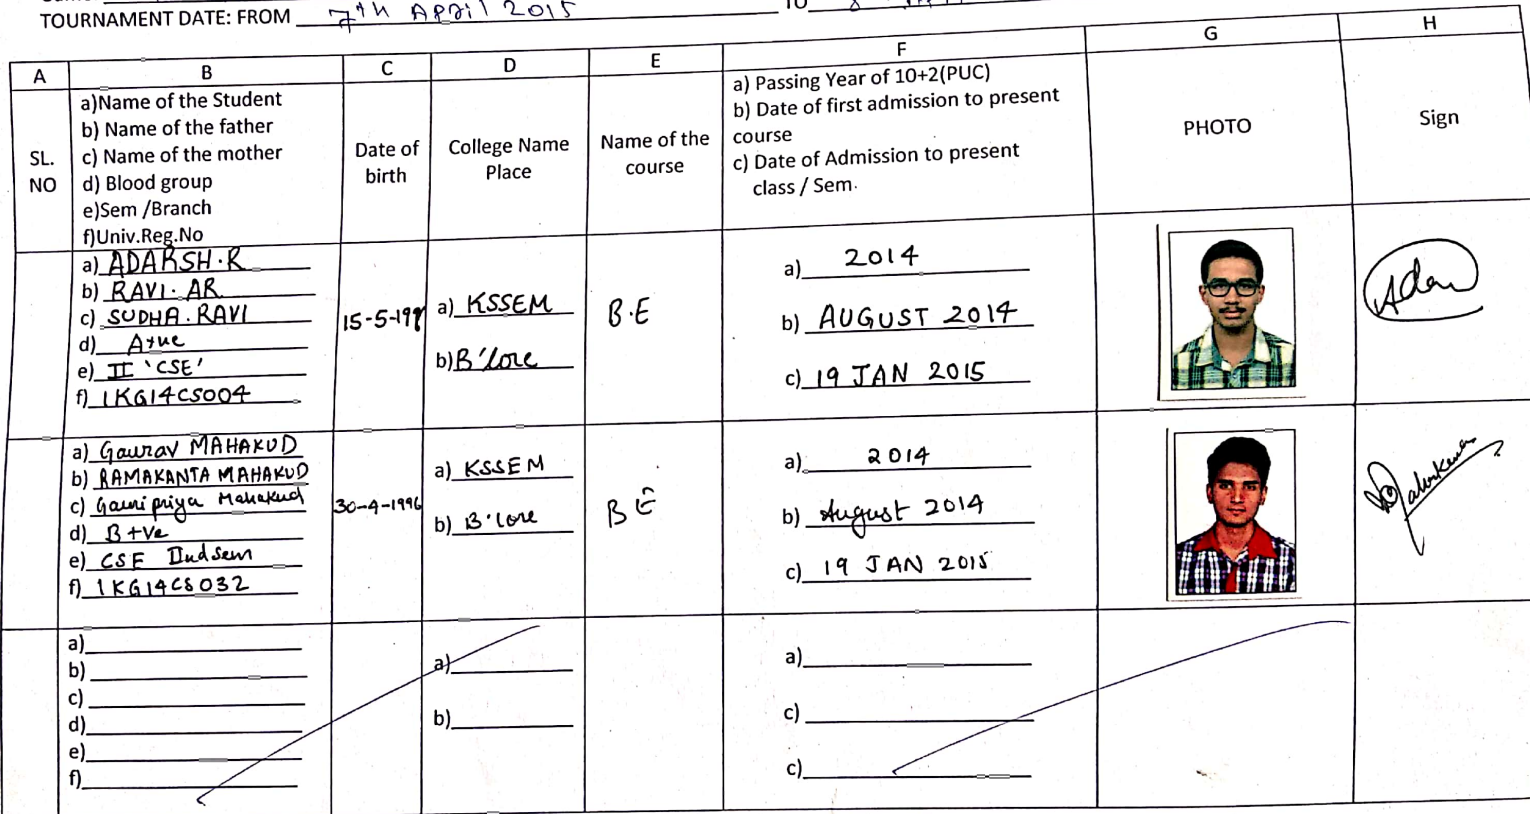 TOURNAMENT DATE: FROM 7th April 2015 TO
A B C D E F G H
SL. NO
a)Name of the Student
b) Name of the father
c) Name of the mother
d) Blood group
e)Sem /Branch
f)Univ.Reg.No
Date of birth
College Name Place
Name of the course
a) Passing Year of 10+2(PUC)
b) Date of first admission to present
course
c) Date of Admission to present
class / Sem.
PHOTO
Sign
a) ADARSH.R
b) RAVI. AR
c) SUDHA. RAVI
d) A+ve
e) II 'CSE'
f) 1KG14CS004
15-5-199
a) KSSEM
b) B'lore
B.E
a) 2014
b) AUGUST 2014
c) 19 JAN 2015
a) Gaurav MAHAKUD
b) RAMAKANTA MAHAKUD
c) Gauripriya Mahakud
d) B +ve
e) CSE IIndsem
f) 1KG14CS032
30-4-1996
a) KSSEM
b) B'lore
BE
a) 2014
b) August 2014
c) 19 JAN 2015
a)
b)
c)
d)
e)
f)
a)
b)
a)
c)
c)